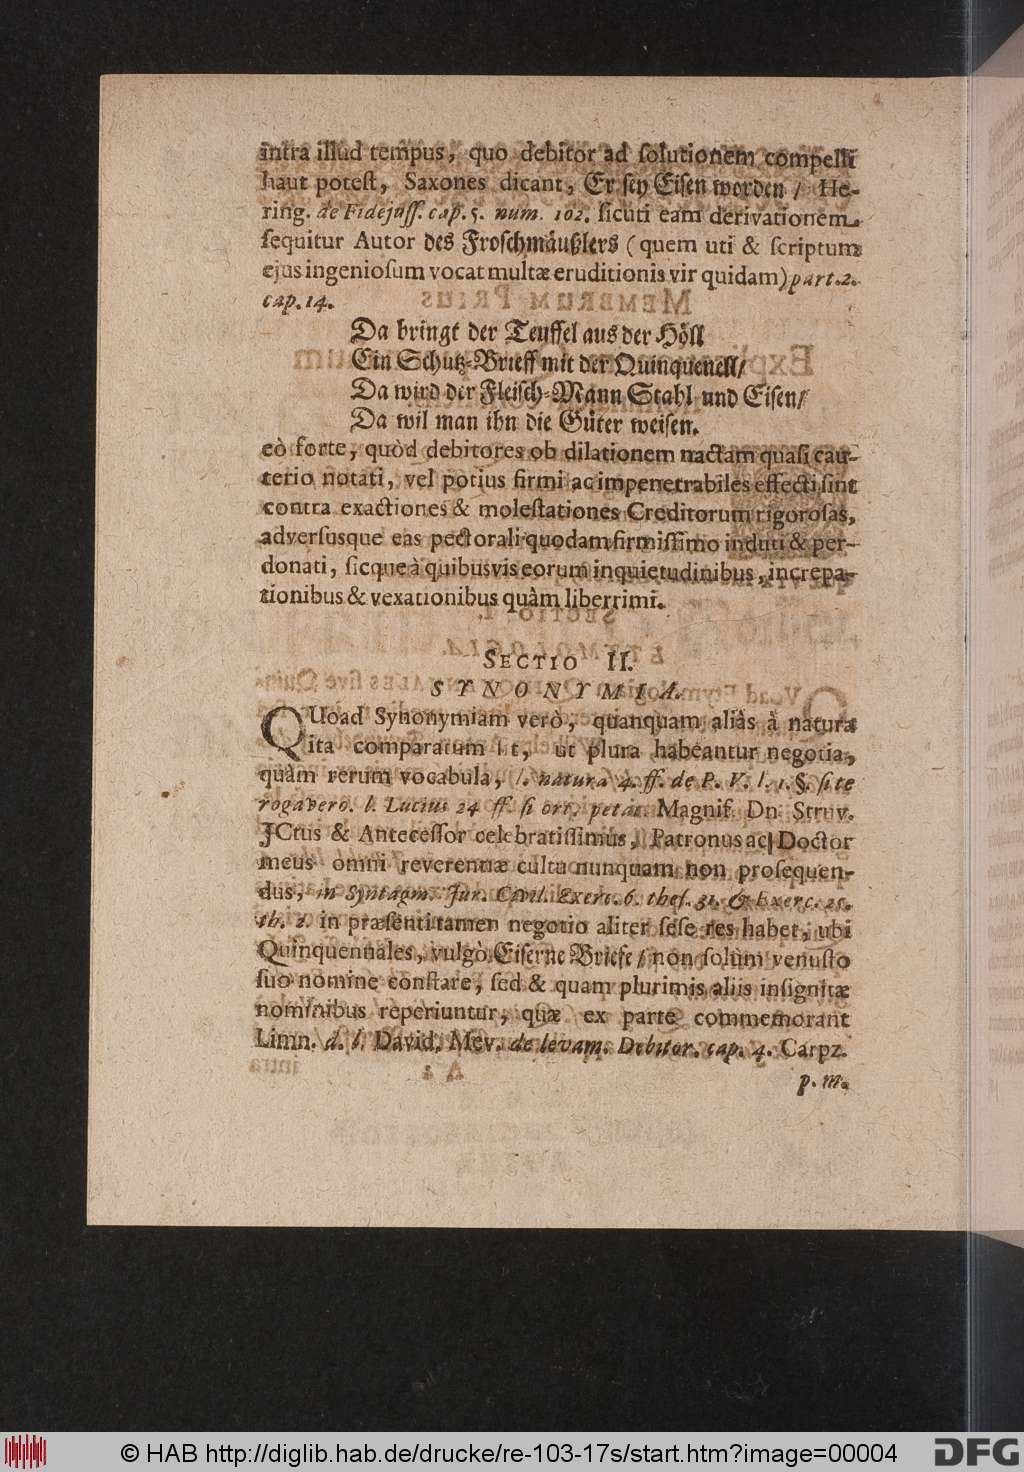 intra illud tempus, quo debitor ad solutionem compelli
haut potest, Saxones dicant, Er sey Eisen worden / He-
ring. de Fidejuss. cap. 5. num. 102. sicuti eam derivationem
sequitur Autor des Froschmäußlers (quem uti & scriptum
ejus ingeniosum vocat multæ eruditionis vir quidam) part. 2.
cap. 14.
Da bringt der Teuffel aus der Höll
Ein Schutz-Brieff mit der Quinquenell/
Da wird der Fleisch-Mann Stahl und Eisen/
Da wil man ihn die Güter weisen.
eò forte, quòd debitores ob dilationem nactam quasi cau-
terio notati, vel potius firmi ac impenetrabiles effecti sint
contra exactiones & molestationes Creditorum rigorosas,
adversusque eas pectorali quodam firmissimo induti & per-
donati, sicque à quibusvis eorum inquietudinibus, increpa-
tionibus & vexationibus quàm liberrimi.
SECTIO II.
SYNONYMIA.
QUoad Synonymiam verò, quanquam aliàs à natura
ita comparatum sit, ut plura habeantur negotia,
quàm rerum vocabula, l. natura 4. ff. de P. V. l. 1. §. si te
rogavero. l. Lucius 24 ff. si cert. petat. Magnif. Dn. Struv.
JCtus & Antecessor celebratissimus, Patronus ac Doctor
meus omni reverentiæ cultu nunquam non prosequen-
dus, in Syntagm. Jur. Civil. Exerc. 6. thes. 31. & Exerc. 25.
th. 2. in præsenti tamen negotio aliter sese res habet, ubi
Quinquennales, vulgò Eiserne Briefe / non solùm venusto
suo nomine constare, sed & quam plurimis aliis insignitæ
nominibus reperiuntur, quæ ex parte commemorant
Limn. d. l. David. Mev. de levam. Debitor. cap. 4. Carpz.
p. m.
© HAB http://diglib.hab.de/drucke/re-103-17s/start.htm?image=00004
DFG